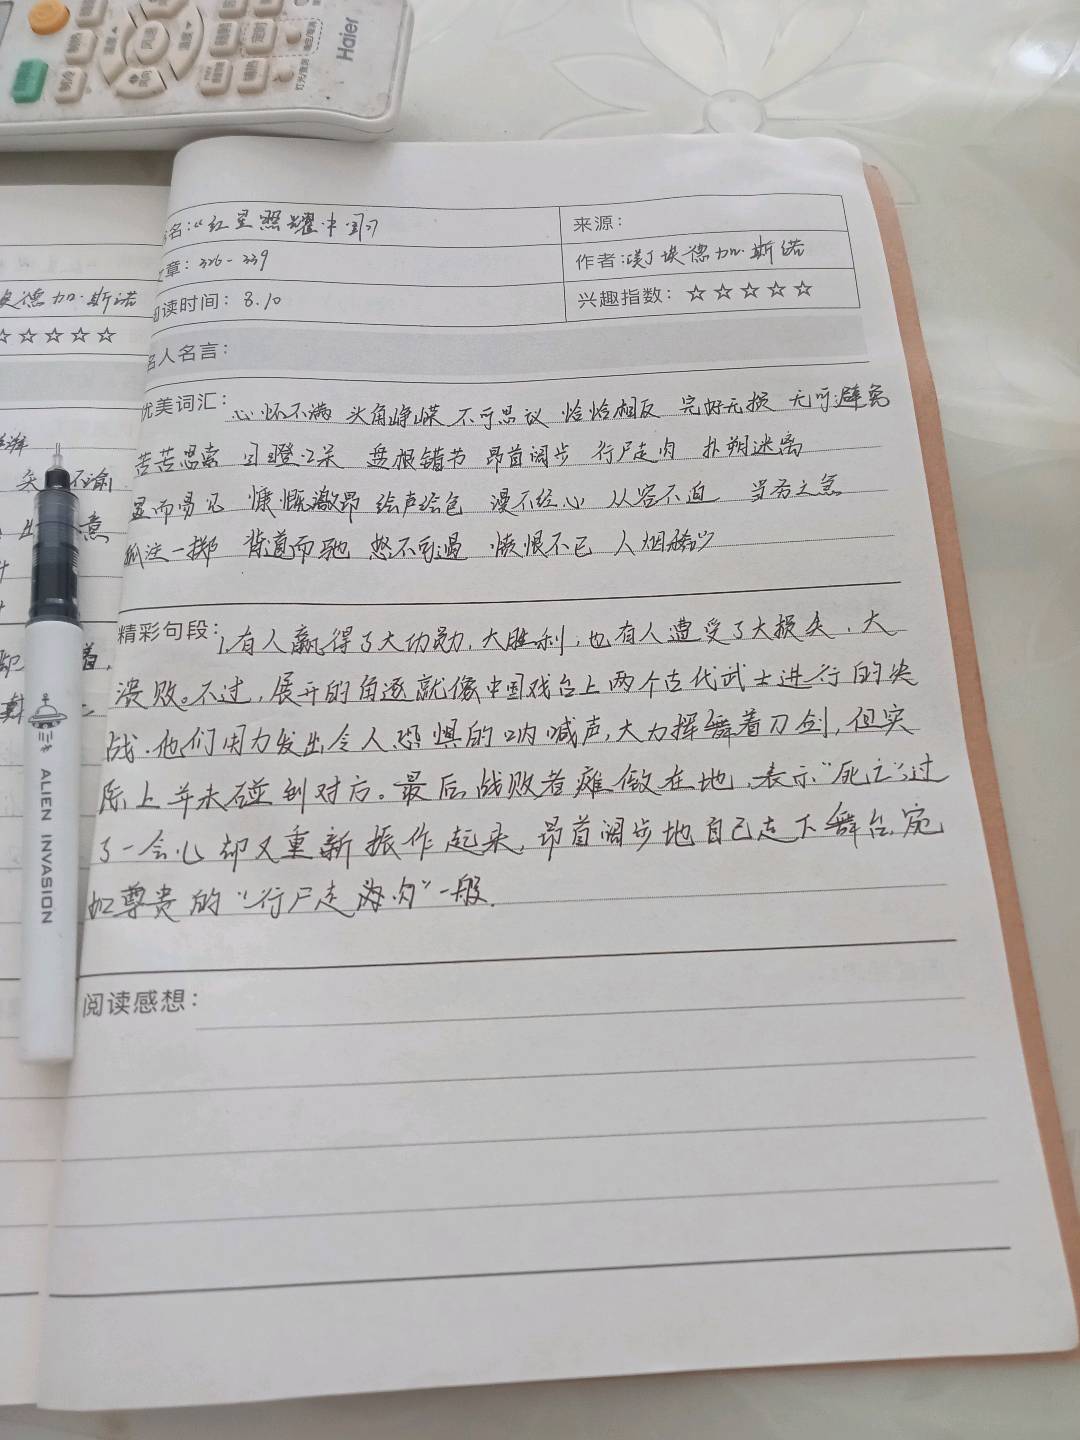 Haier
制冷
制热
风速
风向
定时
辅热
书名:《红星照耀中国》
来源:
文章: 326-339
作者:[美]埃德加·斯诺
阅读时间: 8.10
兴趣指数: ☆☆☆☆☆
名人名言:
优美词汇: 心怀不满 头角峥嵘 不可思议 恰恰相反 完好无损 无可避免
苦苦思索 目瞪口呆 盘根错节 昂首阔步 行尸走肉 扑朔迷离
显而易见 慷慨激昂 绘声绘色 漫不经心 从容不迫 当务之急
孤注一掷 背道而驰 怒不可遏 愤恨不已 人烟稀少
精彩句段: 1.有人赢得了大功勋,大胜利,也有人遭受了大损失,大
溃败。不过,展开的角逐就像中国戏台上两个古代武士进行的决
战.他们用力发出令人恐惧的呐喊声,大力挥舞着刀剑,但实
际上并未碰到对方。最后,战败者瘫做在地,表示“死亡”,过
了一会儿却又重新振作起来,昂首阔步地自己走下舞台,宛
如尊贵的“行尸走肉”一般.
阅读感想:
埃德加·斯诺
☆☆☆☆☆
ALIEN INVASION